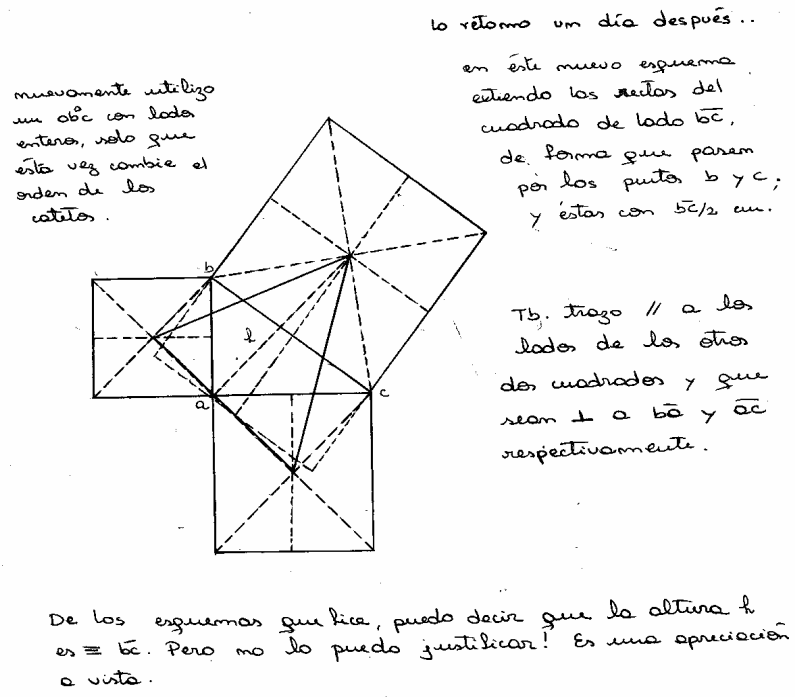 Lo retomo un día después..
en éste nuevo esquema
extiendo las rectas del
cuadrado de lado b̅c̅,
de forma que pasen
por los puntos b y c;
y éstas con b̅c̅/2 cm.
nuevamente utilizo
un abc con lados
enteros, solo que
esta vez cambie el
orden de los
catetos.
b
l
a
c
Tb. trazo // a los
lados de los otros
dos cuadrados y que
sean ⊥ a ba̅ y a̅c̅
respectivamente.
De los esquemas que hice, puedo decir que la altura h
es ≡ b̅c̅. Pero no lo puedo justificar! Es una apreciación
a vista.